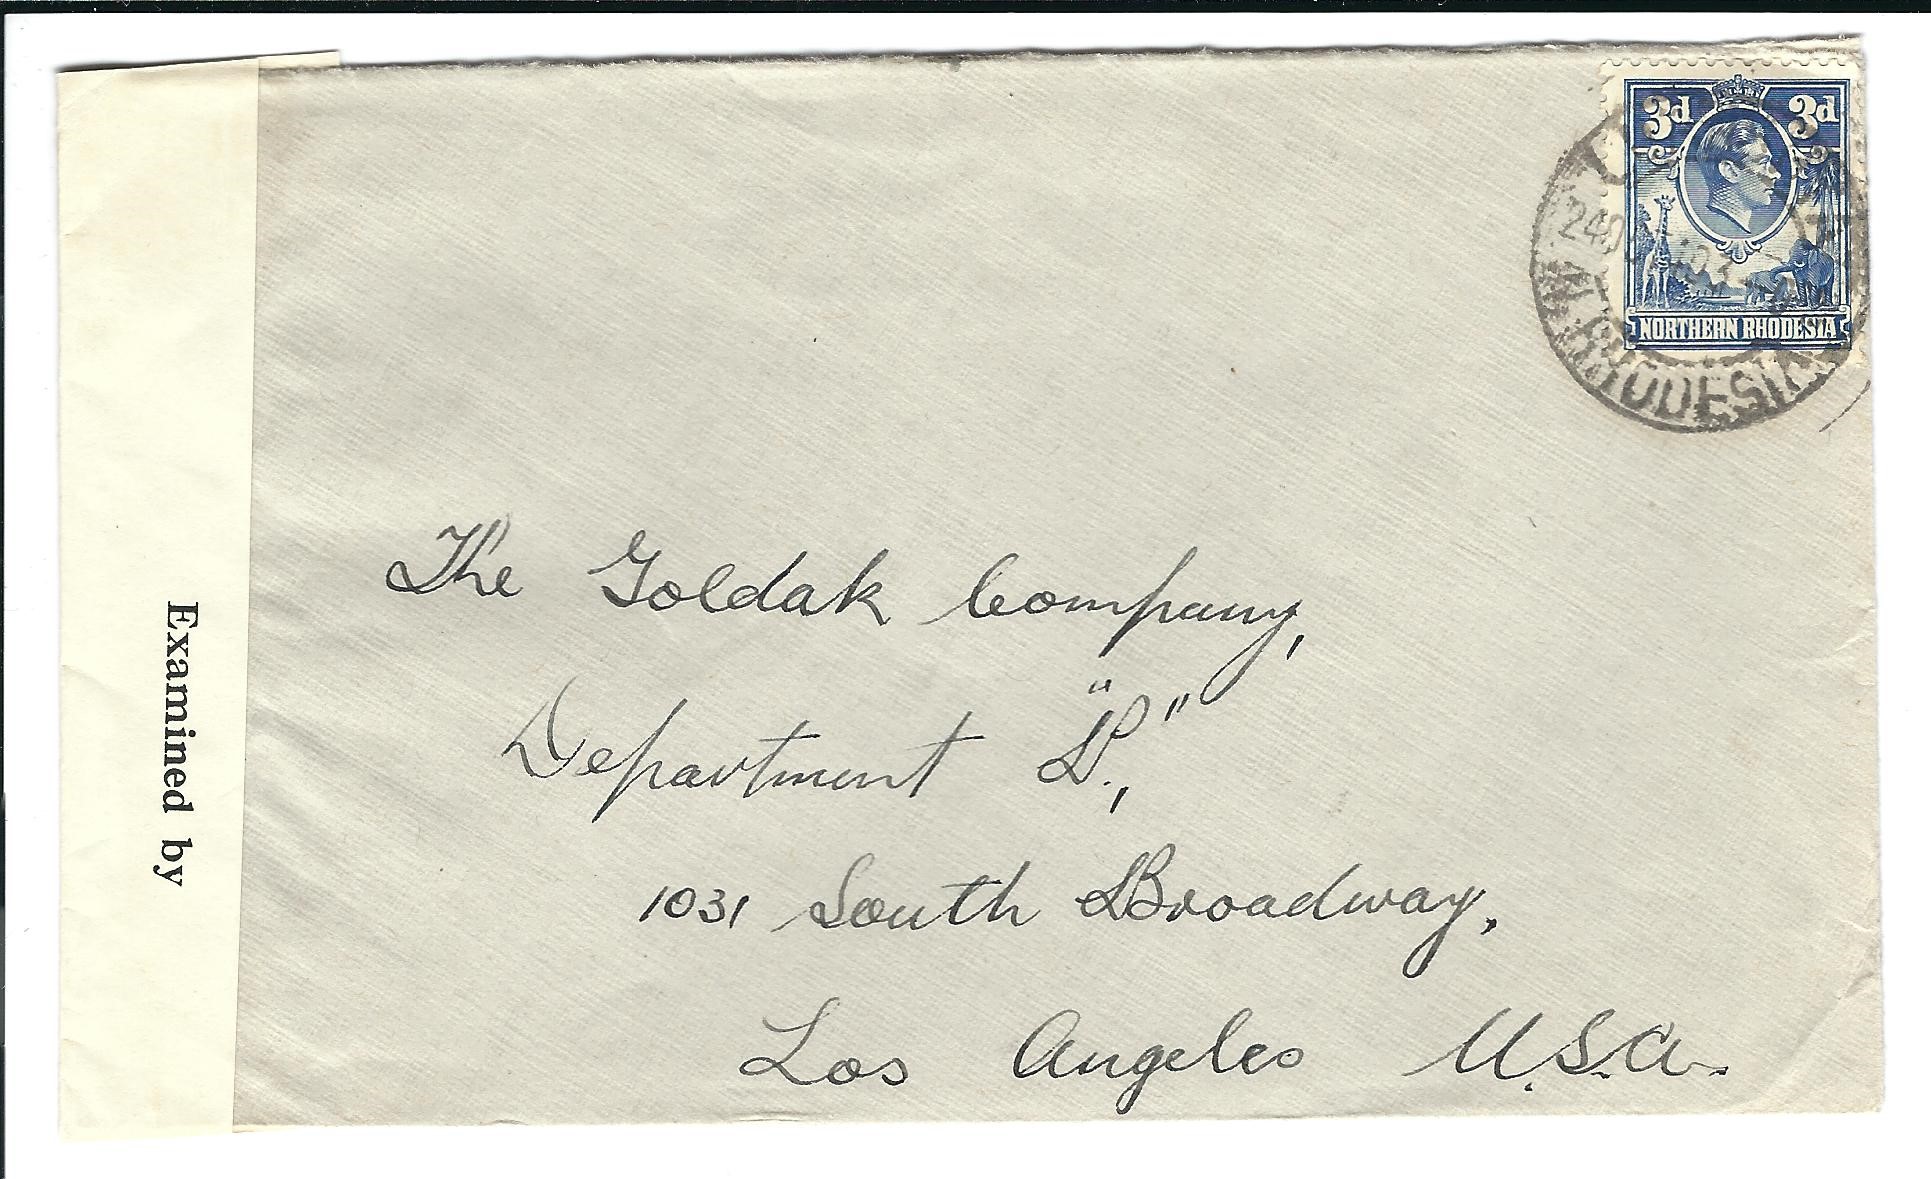 3d 3d
NORTHERN RHODESIA
N. RHODESIA
Examined by
The Goldak Company,
Department "P.,"
1031 South Broadway,
Los Angeles U.S.A.